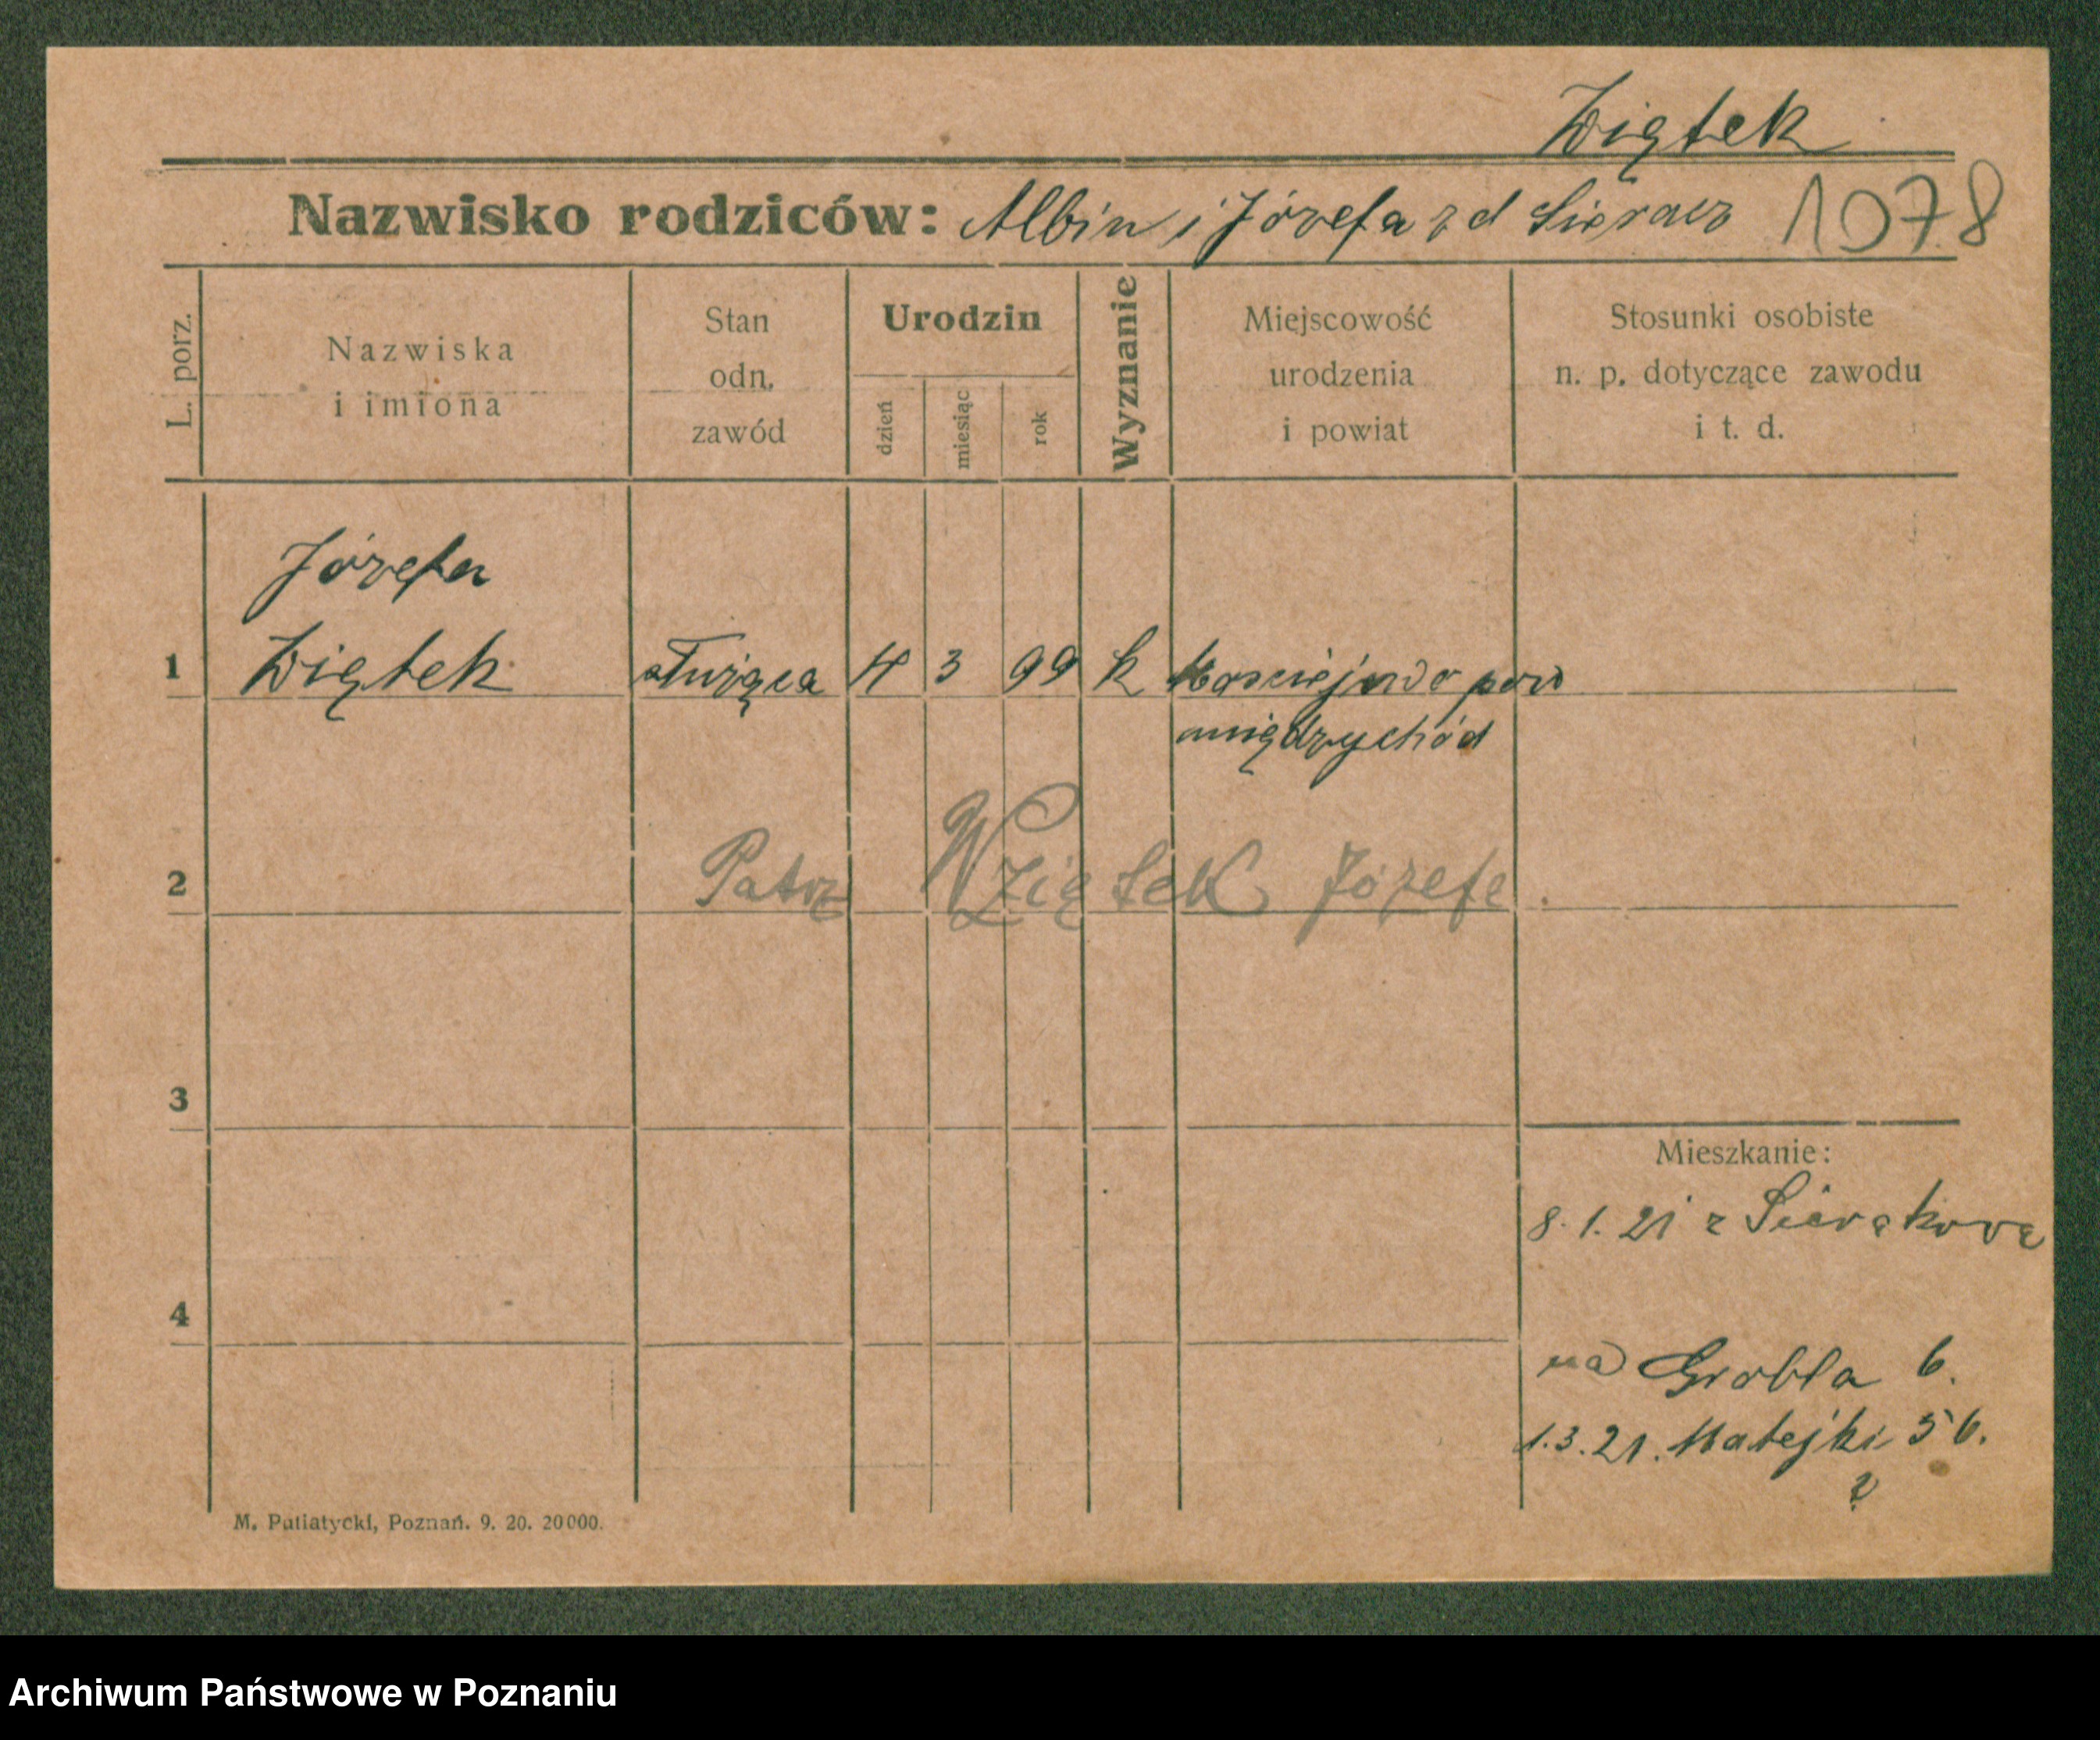 Ziętek
Nazwisko rodziców: Albin i Józefa zd Sieracz 1078
L. porz.
Nazwiska
i imiona
Stan
odn.
zawód
Urodzin
dzień
miesiąc
rok
Wyznanie
Miejscowość
urodzenia
i powiat
Stosunki osobiste
n. p. dotyczące zawodu
i t. d.
Józefa
1 Ziętek służąca 4 3 99 k pow
międzychód
2 Patrz Wziętek Józefa
3
Mieszkanie:
8.1.21 z
4
na Grobla 6.
1.3.21. Matejki 56.
M. Putiatycki, Poznań. 9. 20. 20000.
Archiwum Państwowe w Poznaniu